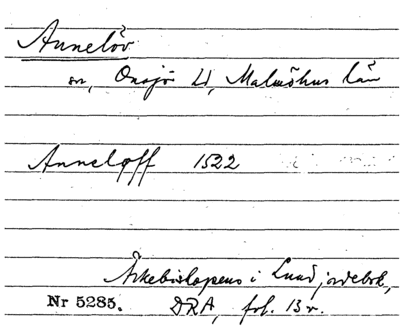 Annelöv
sn, Onsjö hd, Malmöhus län
Anneløff 1522
Ärkebiskopens i Lund jordebok,
Nr 5285. DRA, fol. 13 r.